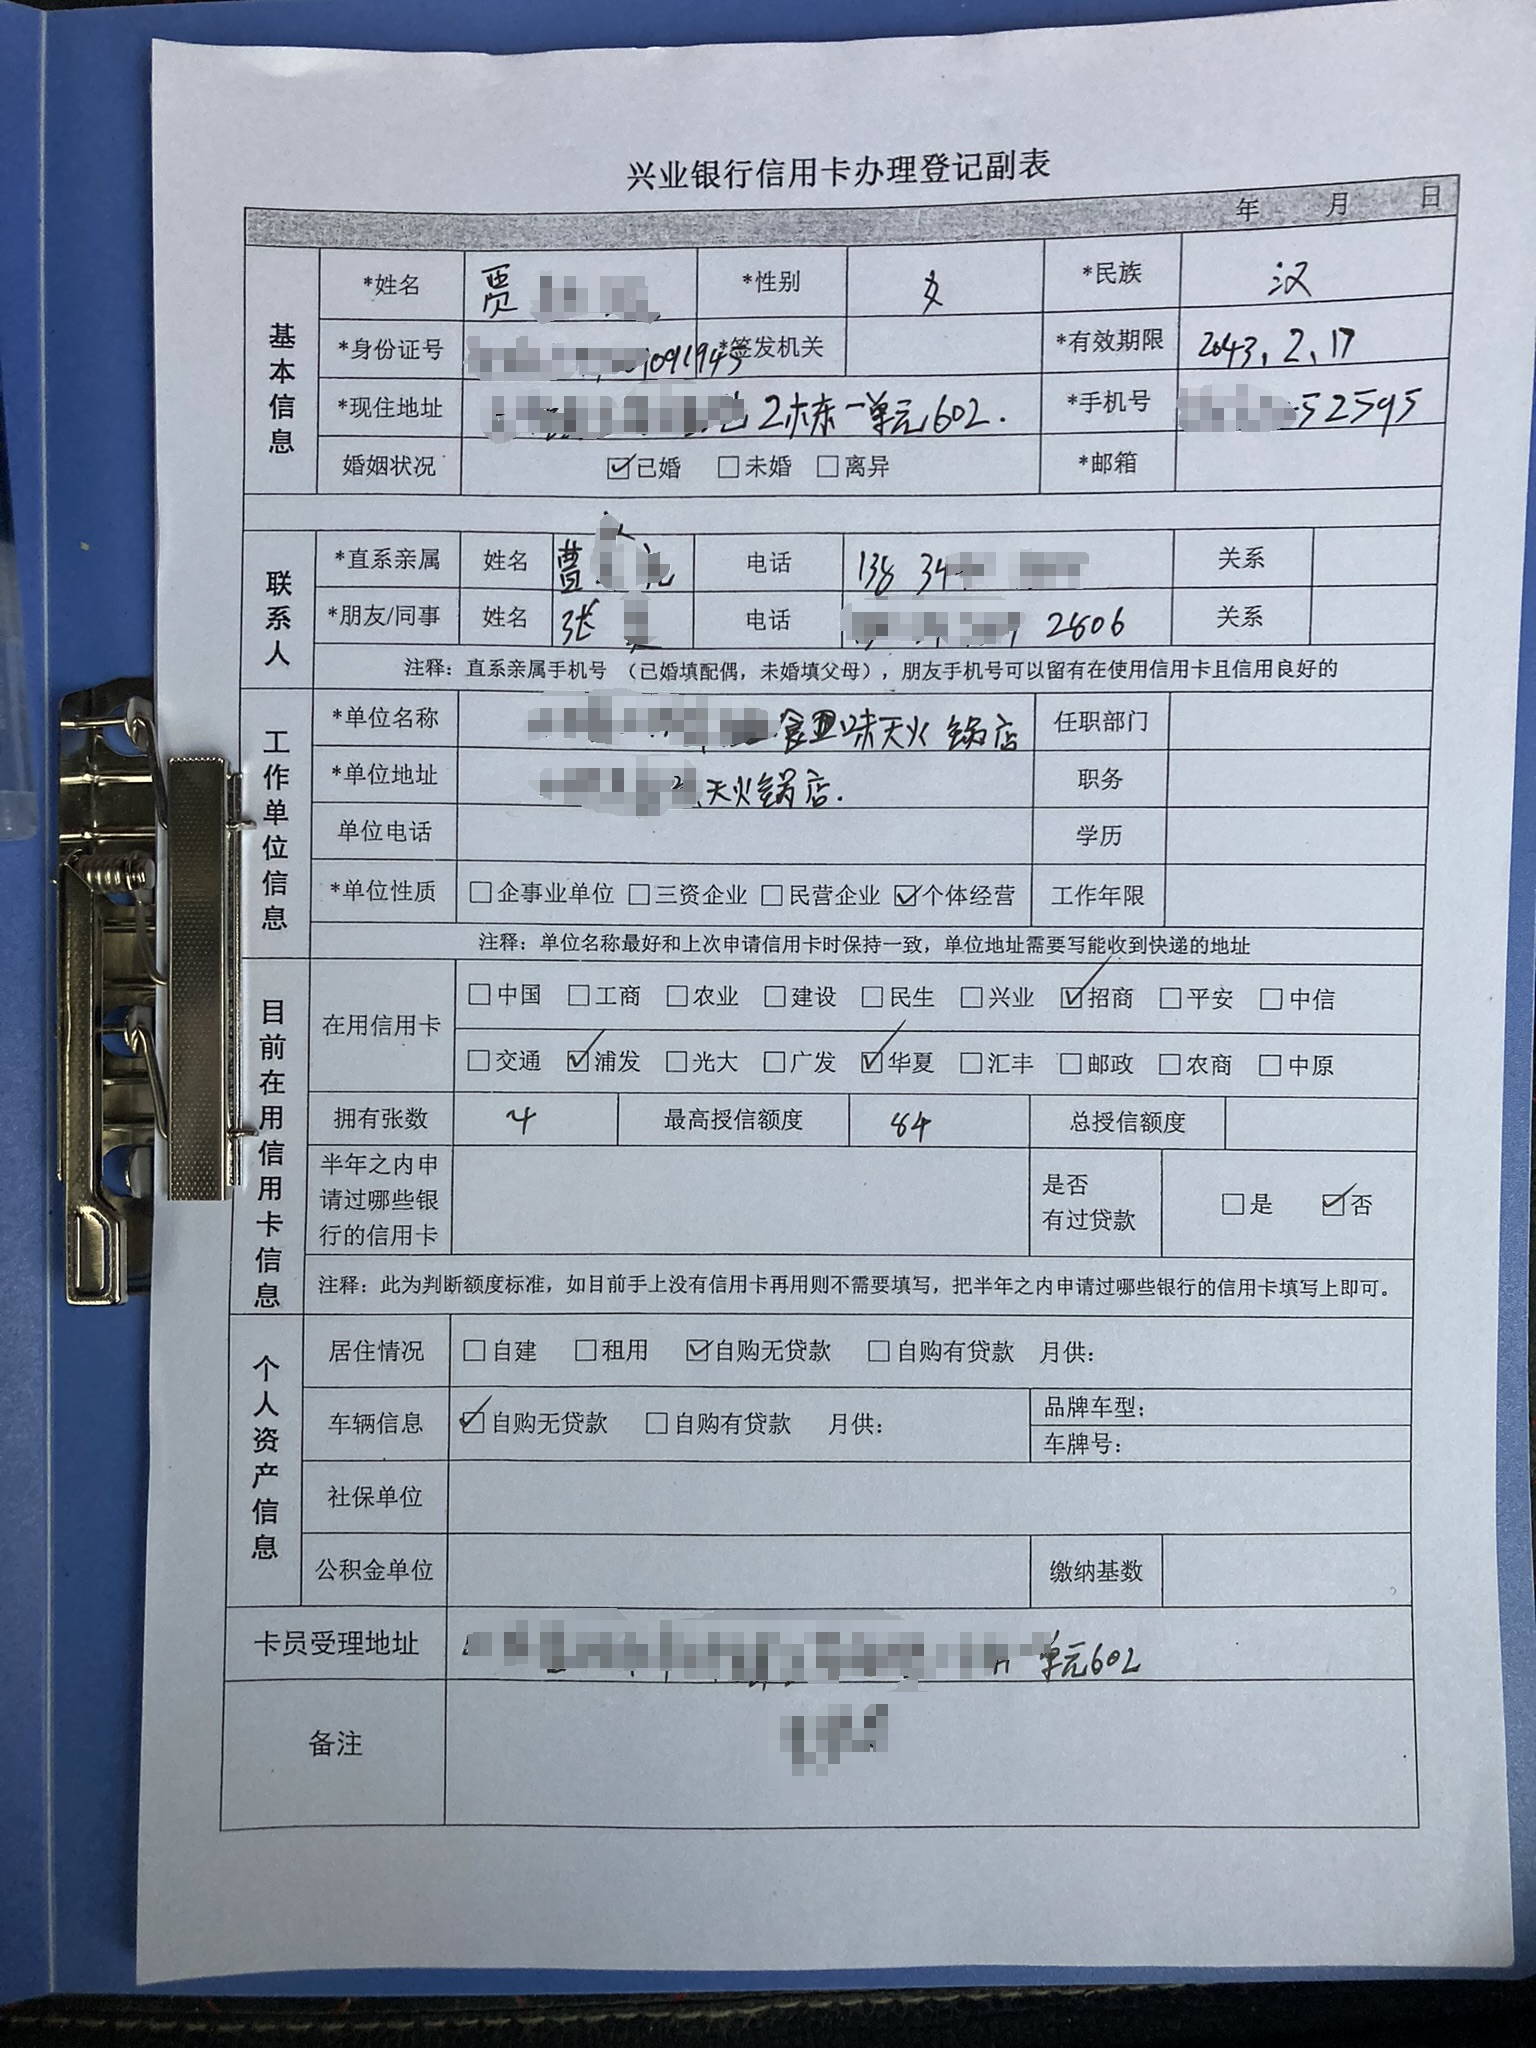 兴业银行信用卡办理登记副表
年 月 日
基本信息
*姓名 贾 *性别 女 *民族 汉
*身份证号 091945 *签发机关 *有效期限 2043.2.17
*现住地址 2栋一单元602. *手机号 52595
婚姻状况 ☑已婚 □未婚 □离异 *邮箱
联系人
*直系亲属 姓名 电话 138 34 关系
*朋友/同事 姓名 张 电话 2806 关系
注释：直系亲属手机号 （已婚填配偶，未婚填父母），朋友手机号可以留有在使用信用卡且信用良好的
工作单位信息
*单位名称 味天火锅店 任职部门
*单位地址 天火锅店. 职务
单位电话 学历
*单位性质 □企事业单位 □三资企业 □民营企业 ☑个体经营 工作年限
注释：单位名称最好和上次申请信用卡时保持一致，单位地址需要写能收到快递的地址
目前在用信用卡信息
在用信用卡 □中国 □工商 □农业 □建设 □民生 □兴业 ☑招商 □平安 □中信
□交通 ☑浦发 □光大 □广发 ☑华夏 □汇丰 □邮政 □农商 □中原
拥有张数 4 最高授信额度 84 总授信额度
半年之内申请过哪些银行的信用卡 是否有过贷款 □是 ☑否
注释：此为判断额度标准，如目前手上没有信用卡再用则不需要填写，把半年之内申请过哪些银行的信用卡填写上即可。
个人资产信息
居住情况 □自建 □租用 ☑自购无贷款 □自购有贷款 月供：
车辆信息 ☑自购无贷款 □自购有贷款 月供： 品牌车型：
车牌号：
社保单位
公积金单位 缴纳基数
卡员受理地址 单元602
备注